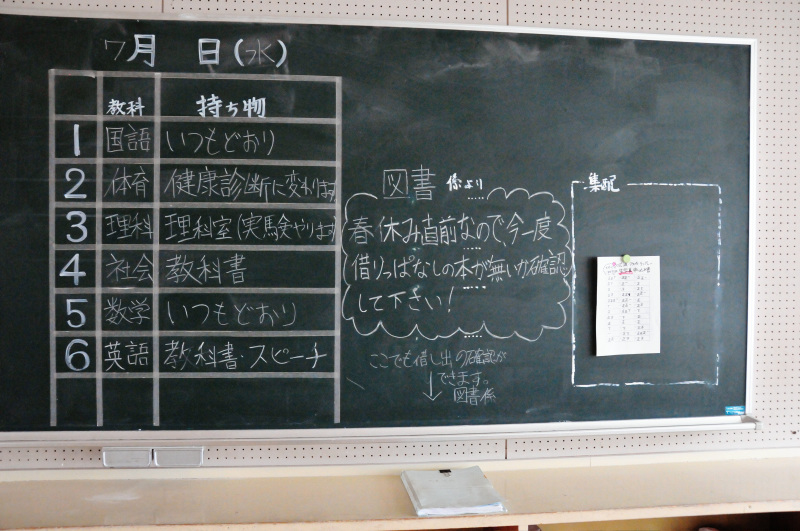 7月 日(水)
教科 持ち物
1 国語 いつもどおり
2 体育 健康診断に変わります
3 理科 理科室(実験やります)
4 社会 教科書
5 数学 いつもどおり
6 英語 教科書・スピーチ
図書係より
春休み直前なので今一度
借りっぱなしの本が無いか確認
して下さい!
ここでも借し出の確認が
できます。
↓ 図書係
集配